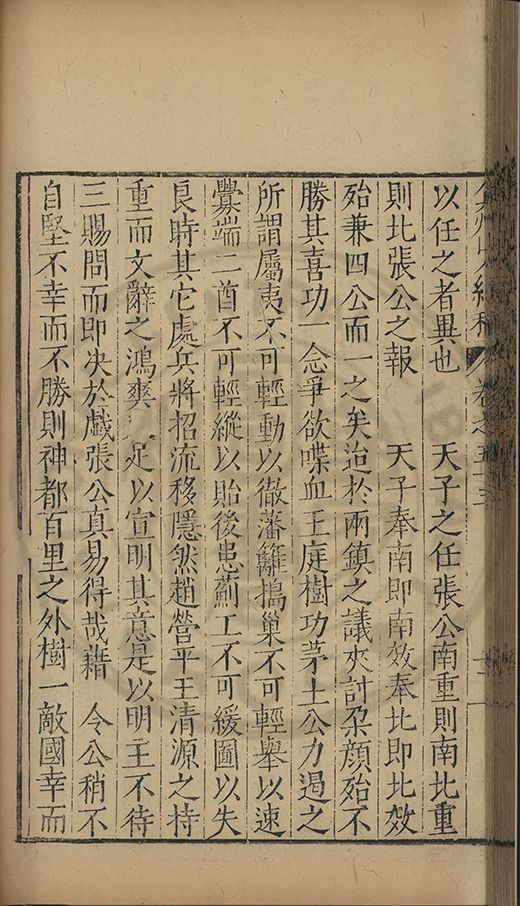 弇州山人續稿 卷之五十三 十一
以任之者異也 天子之任張公南重則南北重
則北張公之報 天子奉南即南效奉北即北效
殆兼四公而一之矣迨於兩鎮之議夾討朶顔殆不
勝其喜功一念爭欲喋血王庭樹功茅土公力遏之
所謂屬夷不可輕動以徹藩籬搗巢不可輕舉以速
釁端二酋不可輕縱以貽後患薊工不可緩圖以失
良時其它處兵將招流移隱然趙營平王清源之持
重而文辭之鴻爽 足以宣明其意是以明王不待
三賜問而即决於戲張公真易得哉藉 令公稍不
自堅不幸而不勝則神都百里之外樹一敵國幸而